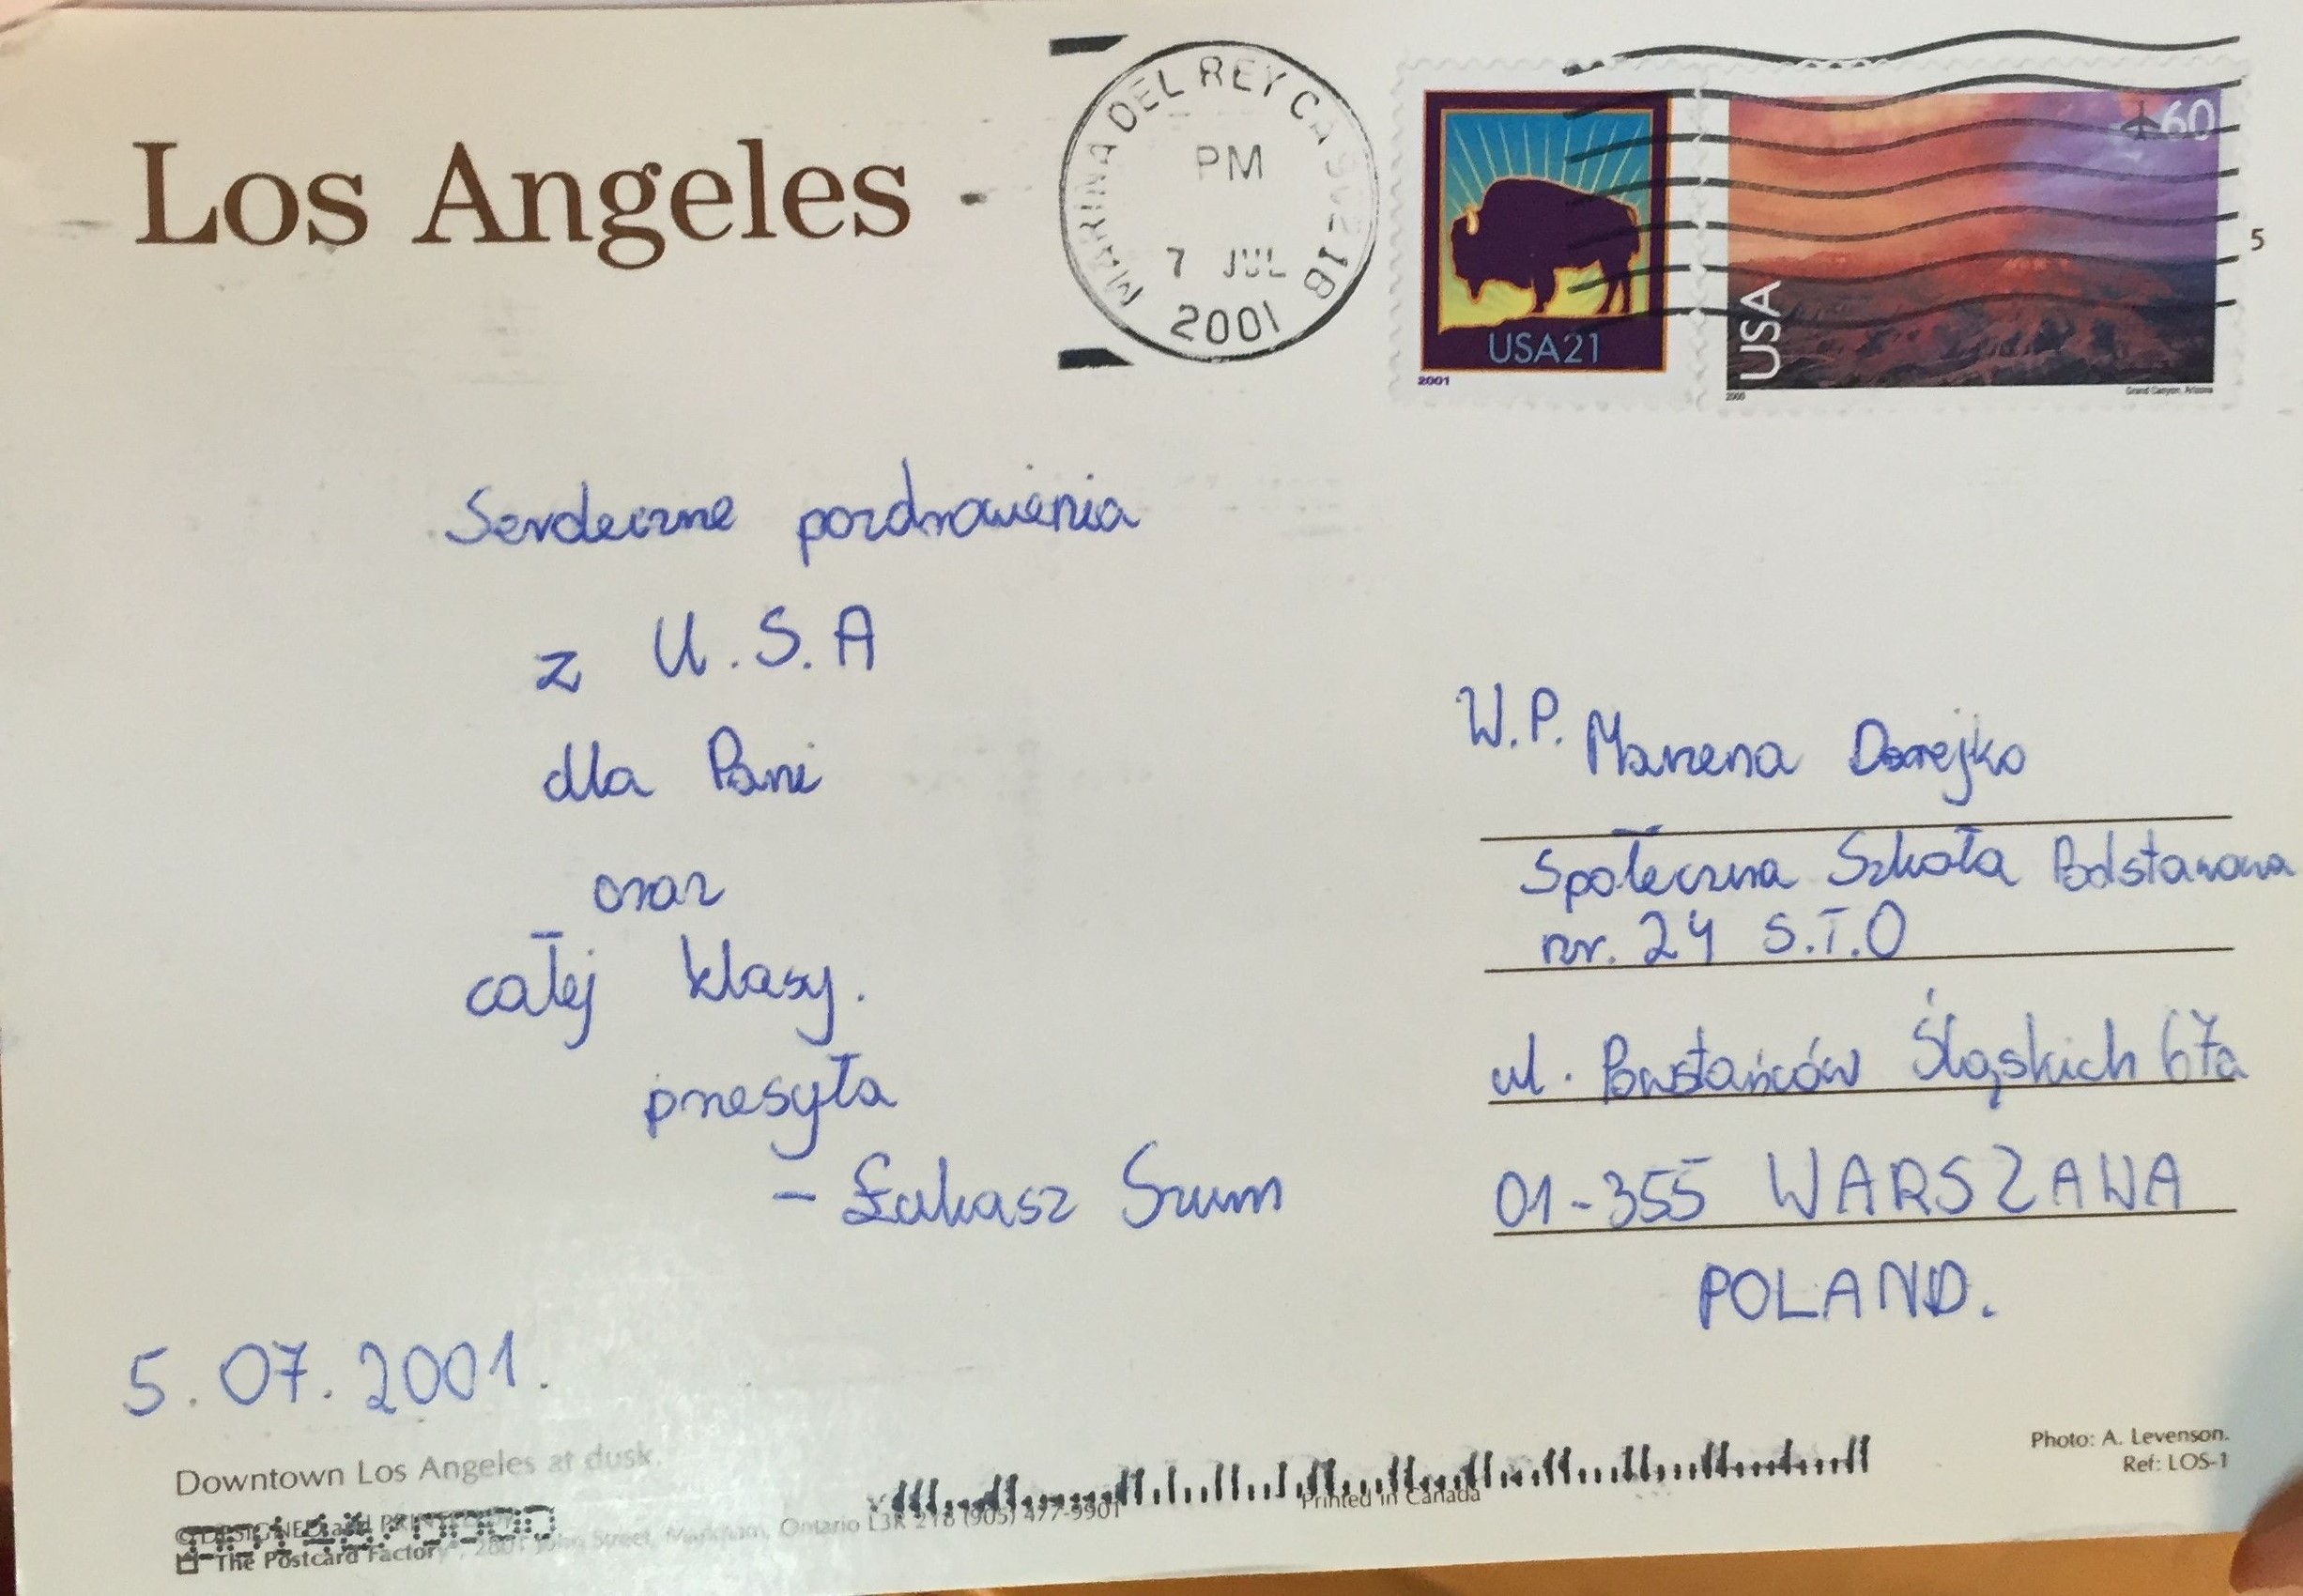 Los Angeles
MARINA DEL REY CA
PM
7 JUL
2001
USA21
2001
60
USA
2000
Grand Canyon, Arizona
5
Serdeczne pozdrowienia
z U.S.A
dla Pani
oraz
całej klasy.
przesyła
– Łukasz Szum
5.07.2001.
W.P. Marzena Darejko
Społeczna Szkoła Podstawowa
nr. 24 S.T.O
ul. Powstańców Śląskich 67a
01-355 WARSZAWA
POLAND.
Downtown Los Angeles at dusk.
The Postcard Factory®, 2801 John Street, Markham, Ontario L3R 2Y8 (905) 477-9901
Printed in Canada
Photo: A. Levenson.
Ref: LOS-1